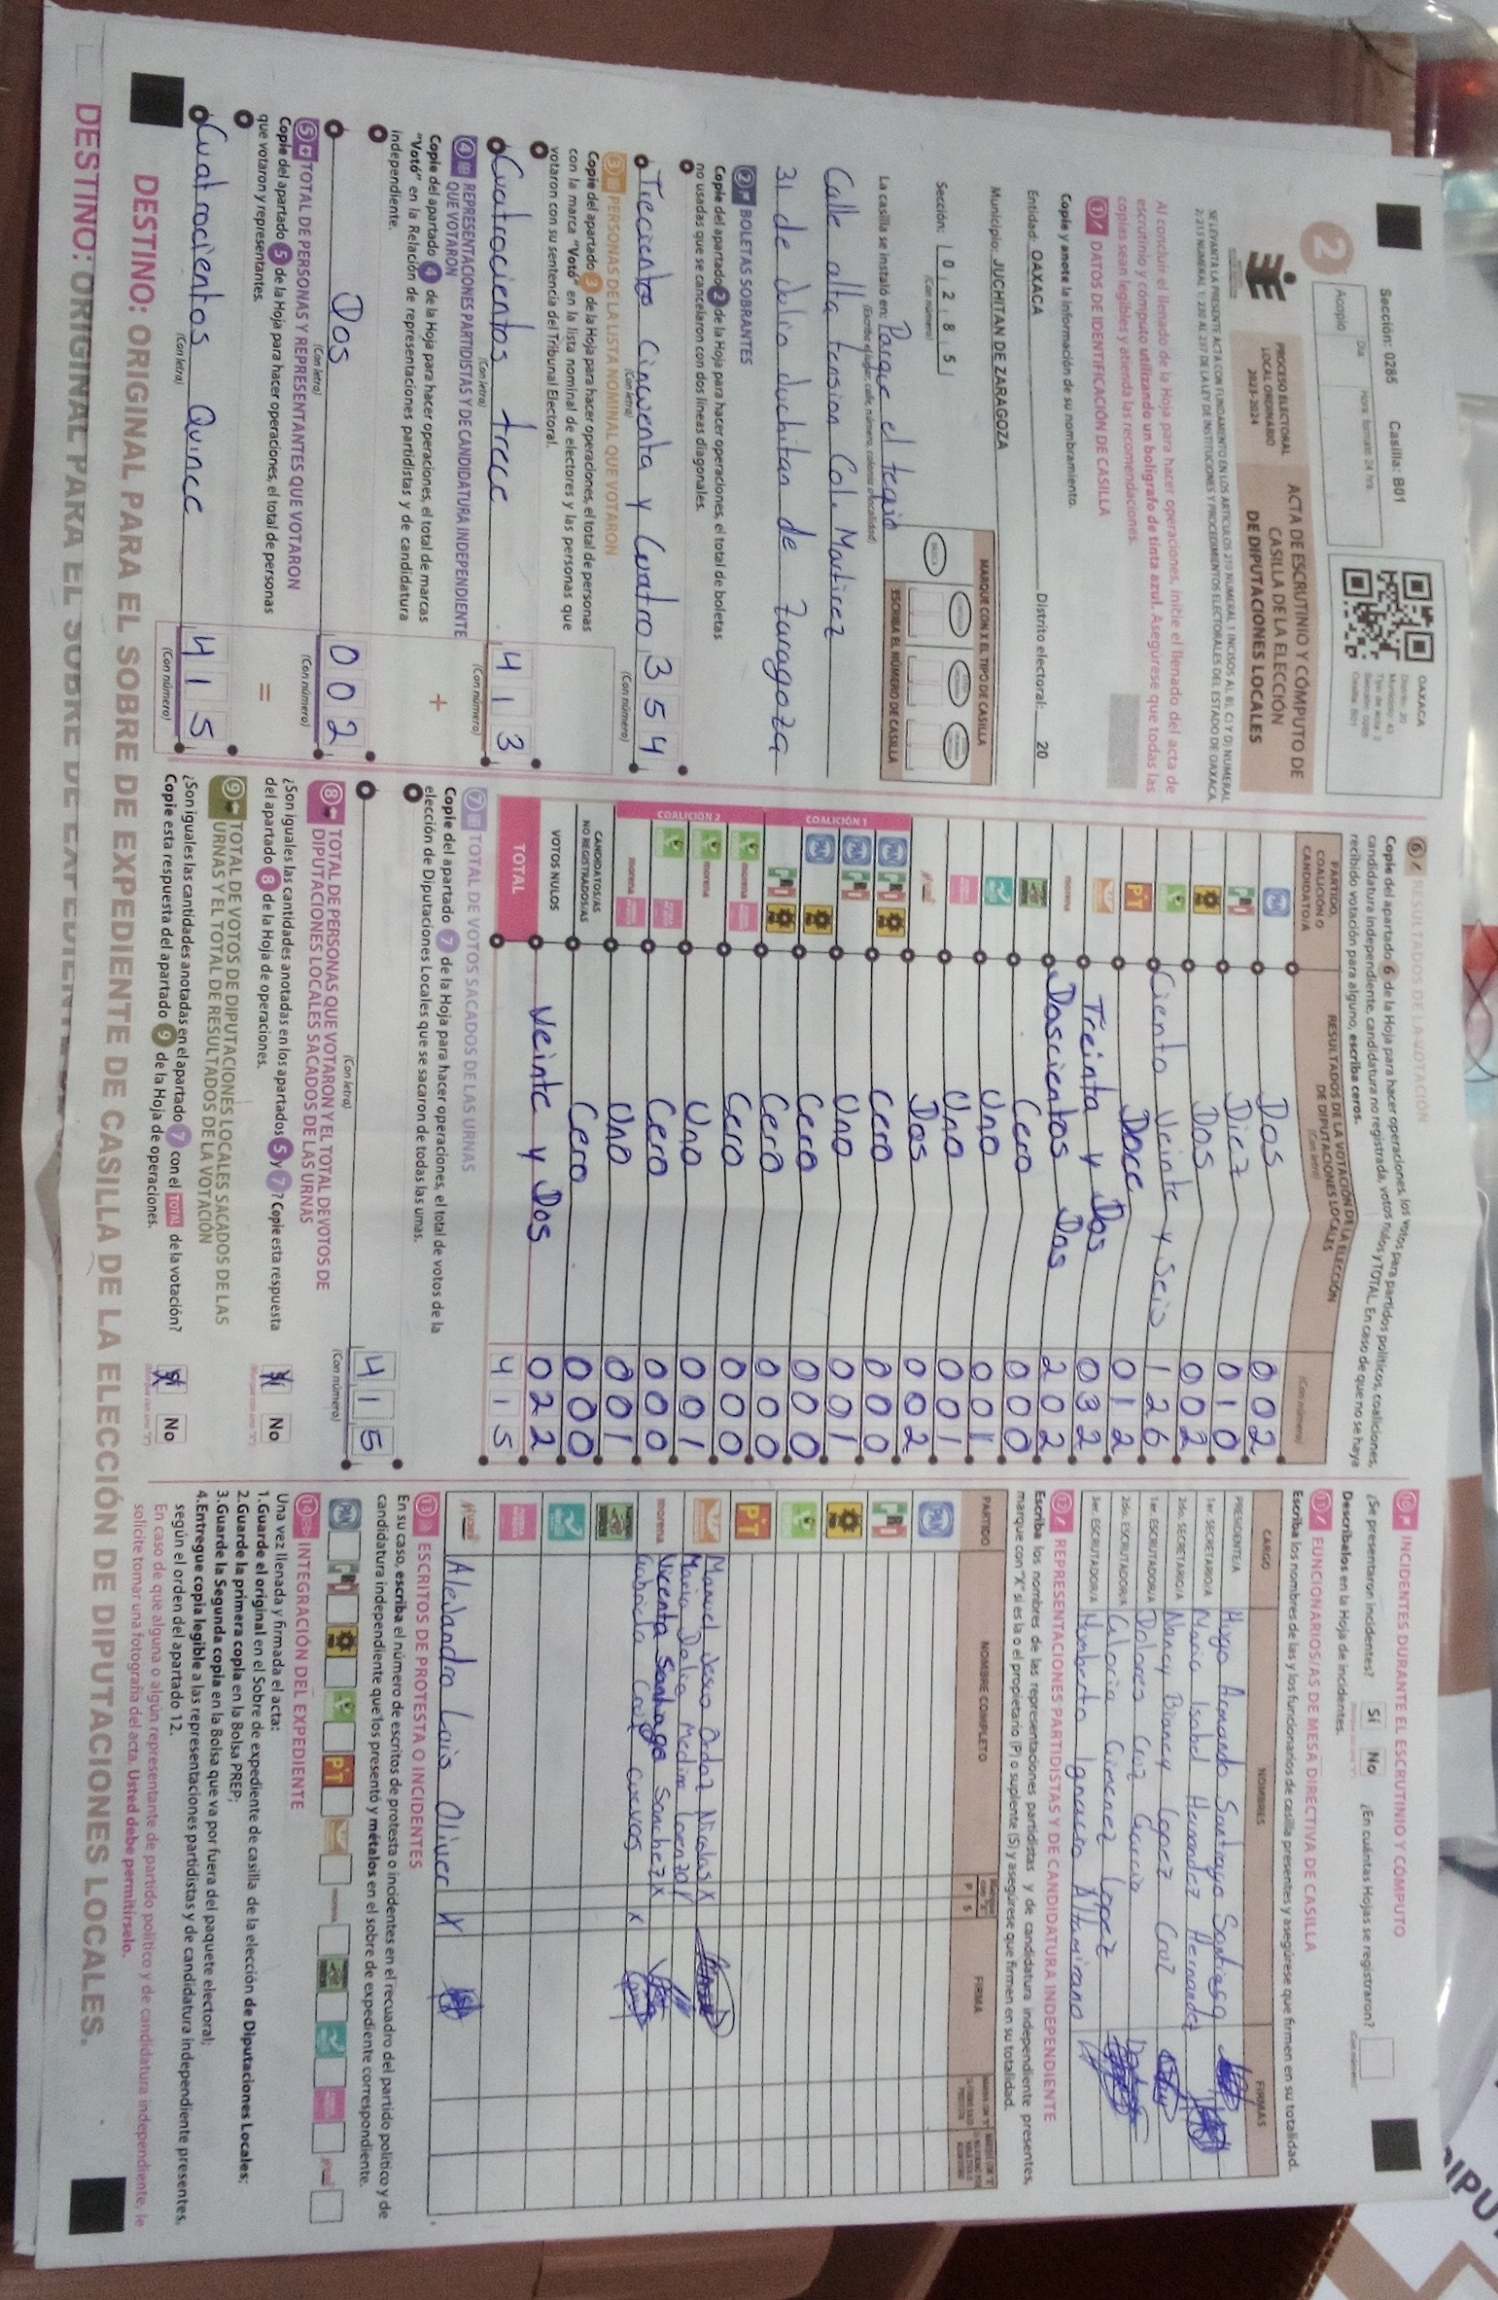 Sección: 0285 Casilla: B01
2
Día
Hora: formato 24 hrs.
Acopio
OAXACA
PROCESO ELECTORAL
LOCAL ORDINARIO
2023-2024
ACTA DE ESCRUTINIO Y CÓMPUTO DE
CASILLA DE LA ELECCIÓN
DE DIPUTACIONES LOCALES
Al concluir el llenado de la Hoja para hacer operaciones, inicie el llenado del acta de
escrutinio y cómputo utilizando un bolígrafo de tinta azul. Asegúrese que todas las
copias sean legibles y atienda las recomendaciones.
1 DATOS DE IDENTIFICACIÓN DE CASILLA
Copie y anote la información de su nombramiento.
Entidad: OAXACA Distrito electoral: 20
Municipio: JUCHITAN DE ZARAGOZA
Sección: 0 2 8 5
(Con número)
MARQUE CON X EL TIPO DE CASILLA
ESCRIBA EL NÚMERO DE CASILLA
La casilla se instaló en: Parque el tequio
(Escriba el lugar: calle, número, colonia o localidad)
Calle alta tension Col. Martirez
31 de Julio Juchitan de Zaragoza
2 BOLETAS SOBRANTES
Copie del apartado 2 de la Hoja para hacer operaciones, el total de boletas
no usadas que se cancelaron con dos líneas diagonales.
Trecientos Cincuenta y Cuatro 3 5 4
(Con letra) (Con número)
3 PERSONAS DE LA LISTA NOMINAL QUE VOTARON
Copie del apartado 3 de la Hoja para hacer operaciones, el total de personas
con la marca "Votó" en la lista nominal de electores y las personas que
votaron con su sentencia del Tribunal Electoral.
Cuatrocientos trece 4 1 3
(Con letra) (Con número)
4 REPRESENTACIONES PARTIDISTAS Y DE CANDIDATURA INDEPENDIENTE
QUE VOTARON
Copie del apartado 4 de la Hoja para hacer operaciones, el total de marcas
"Votó" en la Relación de representaciones partidistas y de candidatura
independiente.
+
Dos 0 0 2
(Con letra) (Con número)
5 TOTAL DE PERSONAS Y REPRESENTANTES QUE VOTARON
Copie del apartado 5 de la Hoja para hacer operaciones, el total de personas
que votaron y representantes.
=
Cuatrocientos Quince 4 1 5
(Con letra) (Con número)
6 RESULTADOS DE LA VOTACIÓN
Copie del apartado 6 de la Hoja para hacer operaciones, los votos para partidos políticos, coaliciones,
candidatura independiente, candidatura no registrada, votos nulos y TOTAL. En caso de que no se haya
recibido votación para alguno, escriba ceros.
PARTIDO,
COALICIÓN O
CANDIDATO/A
RESULTADOS DE LA VOTACIÓN DE LA ELECCIÓN
DE DIPUTACIONES LOCALES
(Con letra) (Con número)
PAN Dos 002
PRI Diez 010
PRD Dos 002
Ciento Veinte y Seis 126
PT Doce 012
Treinta y Dos 032
morena Doscientos Dos 202
Cero 000
Uno 001
Uno 001
Dos 002
COALICIÓN 1
PAN PRI PRD Cero 000
PAN PRI Uno 001
PAN PRD Cero 000
PRI PRD Cero 000
COALICIÓN 2
morena Cero 000
morena Uno 001
Cero 000
morena Uno 001
CANDIDATOS/AS
NO REGISTRADOS/AS Cero 000
VOTOS NULOS Veinte y Dos 022
TOTAL 415
7 TOTAL DE VOTOS SACADOS DE LAS URNAS
Copie del apartado 7 de la Hoja para hacer operaciones, el total de votos de la
elección de Diputaciones Locales que se sacaron de todas las urnas.
4 1 5
(Con letra) (Con número)
8 TOTAL DE PERSONAS QUE VOTARON Y EL TOTAL DE VOTOS DE
DIPUTACIONES LOCALES SACADOS DE LAS URNAS
¿Son iguales las cantidades anotadas en los apartados 5 y 7? Copie esta respuesta
del apartado 8 de la Hoja de operaciones.
Sí No
9 TOTAL DE VOTOS DE DIPUTACIONES LOCALES SACADOS DE LAS
URNAS Y EL TOTAL DE RESULTADOS DE LA VOTACIÓN
¿Son iguales las cantidades anotadas en el apartado 7 con el TOTAL de la votación?
Copie esta respuesta del apartado 9 de la Hoja de operaciones.
Sí No
10 INCIDENTES DURANTE EL ESCRUTINIO Y CÓMPUTO
¿Se presentaron incidentes? Sí No ¿En cuántas Hojas se registraron?
Descríbalos en la Hoja de incidentes.
11 FUNCIONARIOS/AS DE MESA DIRECTIVA DE CASILLA
Escriba los nombres de las y los funcionarios de casilla presentes y asegúrese que firmen en su totalidad.
CARGO NOMBRES FIRMAS
PRESIDENTE/A Hugo Armando Santiago Santiago
1er. SECRETARIO/A Maria Isabel Hernandez Hernandez
2do. SECRETARIO/A Nancy Bianey Lopez Cruz
1er. ESCRUTADOR/A Dolores Cruz Garcia
2do. ESCRUTADOR/A Gloria Gimenez Lopez
3er. ESCRUTADOR/A Humberto Ignacio Altamirano
12 REPRESENTACIONES PARTIDISTAS Y DE CANDIDATURA INDEPENDIENTE
Escriba los nombres de las representaciones partidistas y de candidatura independiente presentes,
marque con "X" si es la o el propietario (P) o suplente (S) y asegúrese que firmen en su totalidad.
PARTIDO NOMBRE COMPLETO P S FIRMA
PAN
PRI
PRD
PT
Manuel Jesus Ordaz Nicolas X
Maria Dalia Medina Lorenzo
morena Vicenta Santiago Sanchez X
Gabriela Cruz cuevas X
Alejandro Luis Oliver X
13 ESCRITOS DE PROTESTA O INCIDENTES
En su caso, escriba el número de escritos de protesta o incidentes en el recuadro del partido político y de
candidatura independiente que los presentó y métalos en el sobre de expediente correspondiente.
PAN PRI PRD PT
14 INTEGRACIÓN DEL EXPEDIENTE
Una vez llenada y firmada el acta:
1.Guarde el original en el Sobre de expediente de casilla de la elección de Diputaciones Locales;
2.Guarde la primera copia en la Bolsa PREP;
3.Guarde la Segunda copia en la Bolsa que va por fuera del paquete electoral;
4.Entregue copia legible a las representaciones partidistas y de candidatura independiente presentes,
según el orden del apartado 12.
En caso de que alguna o algún representante de partido político y de candidatura independiente, le
solicite tomar una fotografía del acta. Usted debe permitírselo.
DESTINO: ORIGINAL PARA EL SOBRE DE EXPEDIENTE DE CASILLA DE LA ELECCIÓN DE DIPUTACIONES LOCALES.
DESTINO: ORIGINAL PARA EL SOBRE DE EXPEDIENTE
DIPU